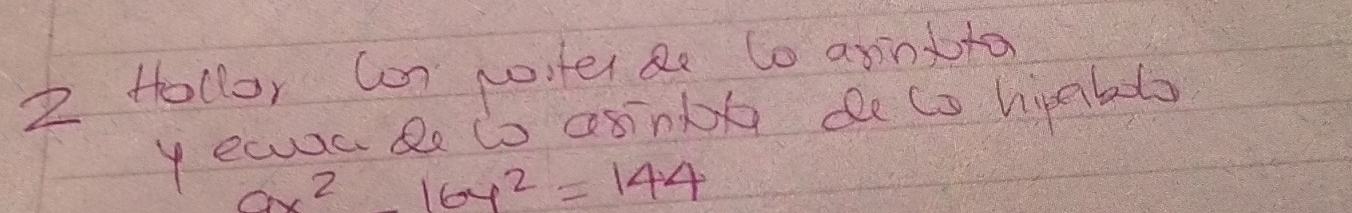 2 Hallar los partes de la asintota
y ecuac de la asintota de la hiperbola
9x² - 16y² = 144